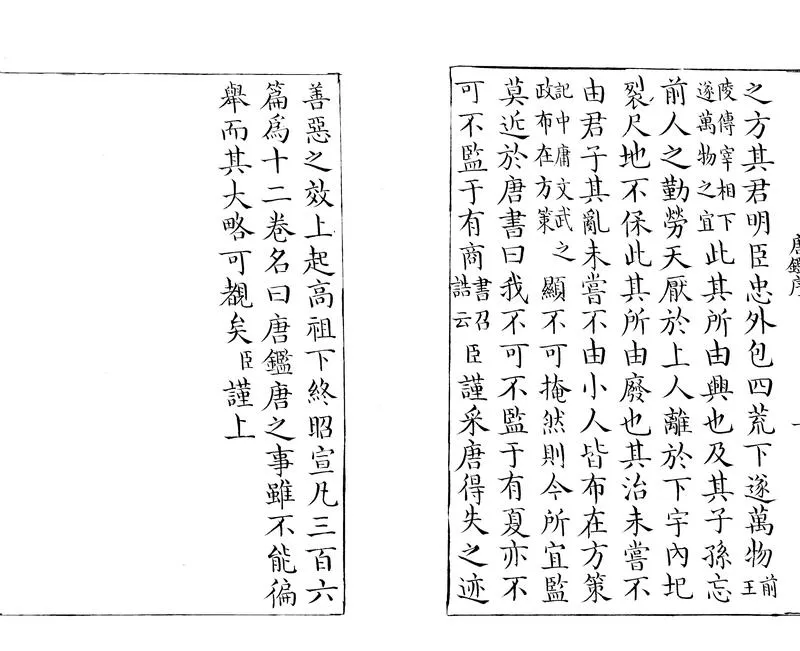 唐鑑序
一
之方其君明臣忠外包四荒下遂萬物前王
陵傳宰相下遂萬物之宜此其所由興也及其子孫忘
前人之勤勞天厭於上人離於下宇內圮
裂尺地不保此其所由廢也其治未嘗不
由君子其亂未嘗不由小人皆布在方策
記中庸文武之政布在方策顯不可掩然則今所宜監
莫近於唐書曰我不可不監于有夏亦不
可不監于有商書召誥云臣謹采唐得失之迹
善惡之效上起高祖下終昭宣凡三百六
篇爲十二卷名曰唐鑑唐之事雖不能徧
舉而其大略可覩矣臣謹上